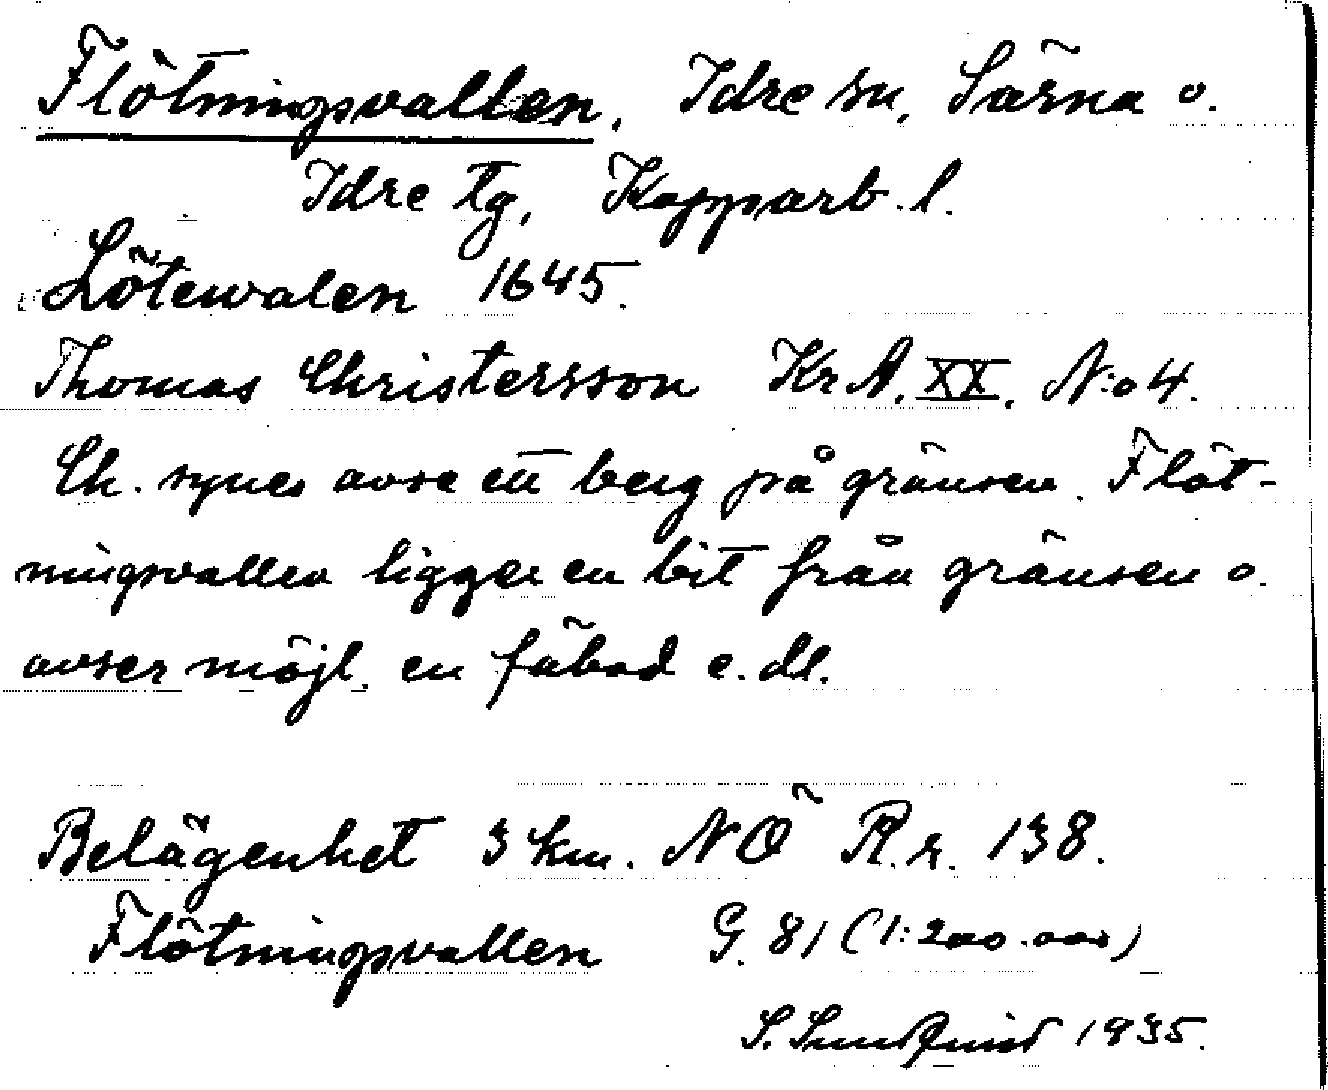 Flötningsvallen, Idre sn, Särna o.
Idre tg, Kopparb. l.
Lötewalen 1645.
Thomas Christersson KrA. XX. N:o 4.
Ch. synes avse ett berg på gränsen. Flöt-
ningsvallen ligger en bit från gränsen o.
avser möjl. en fäbod e. dl.
Belägenhet 3 km. NÖ R.r. 138.
Flötningsvallen G. 81 (1:200.000)
S. Sundquist 1935.